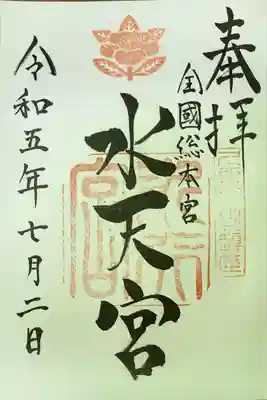 奉拝
全國総本宮
水天宮
令和五年七月二日